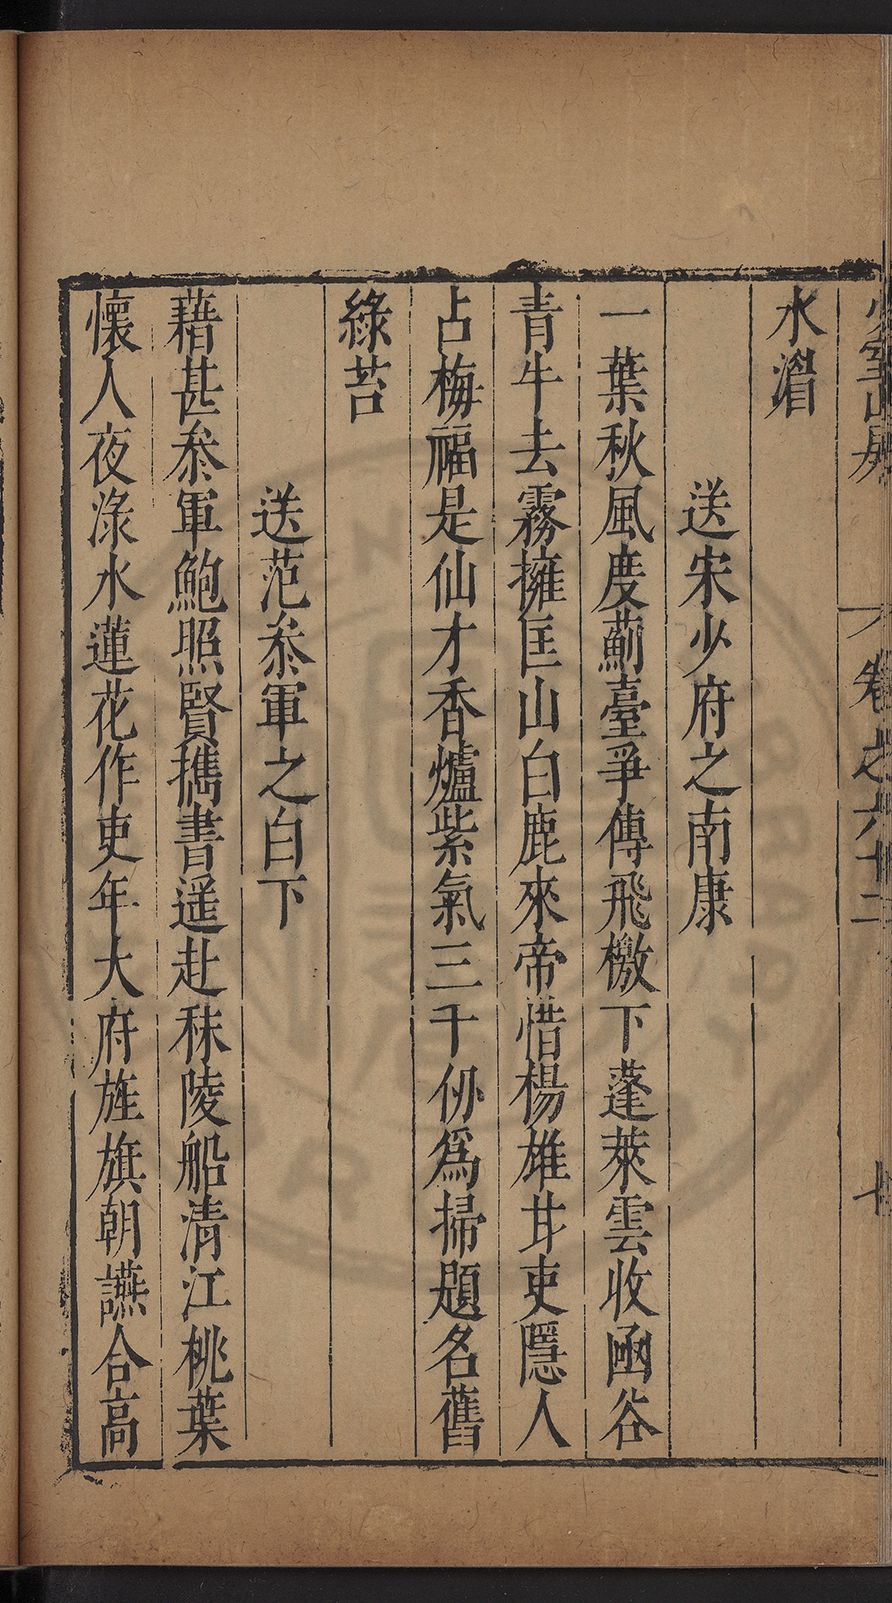 少室山房
卷之六十二
七
水湄
送宋少府之南康
一葉秋風度薊臺爭傳飛檄下蓬萊雲收函谷
青牛去霧擁匡山白鹿來帝惜楊雄甘吏隱人
占梅福是仙才香爐紫氣三千仞爲掃題名舊
綠苔
送范叅軍之白下
藉甚叅軍鮑照賢携書遥赴秣陵船清江桃葉
懷人夜淥水蓮花作吏年大府旌旗朝讌合高